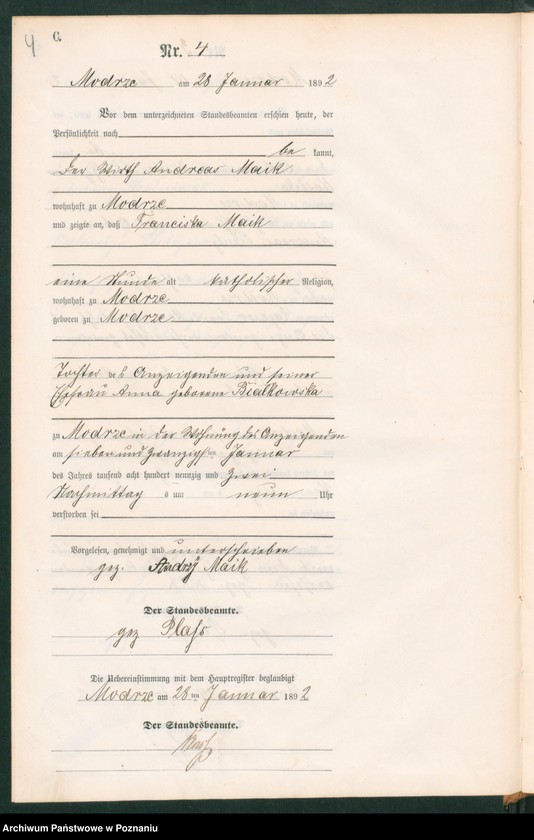 4
C.
Nr. 4
Modrze am 28 Januar 1892
Vor dem unterzeichneten Standesbeamten erschien heute, der
Persönlichkeit nach
be kannt,
Der Wirth Andreas Maik
wohnhaft zu Modrze
und zeigte an, daß Franciska Maik
eine Stunde alt katholischer Religion,
wohnhaft zu Modrze
geboren zu Modrze
Tochter des Anzeigenden und seiner
Ehefrau Anna geborene Bialkowska
zu Modrze in der Wohnung des Anzeigenden
am sieben und zwanzigsten Januar
des Jahres tausend acht hundert neunzig und zwei
Nachmittag s um neun Uhr
verstorben sei
Vorgelesen, genehmigt und unterschrieben
gez. Andrzÿ Maik
Der Standesbeamte.
gez Plass
Die Uebereinstimmung mit dem Hauptregister beglaubigt
Modrze am 28ten Januar 1892
Der Standesbeamte.
Archiwum Państwowe w Poznaniu